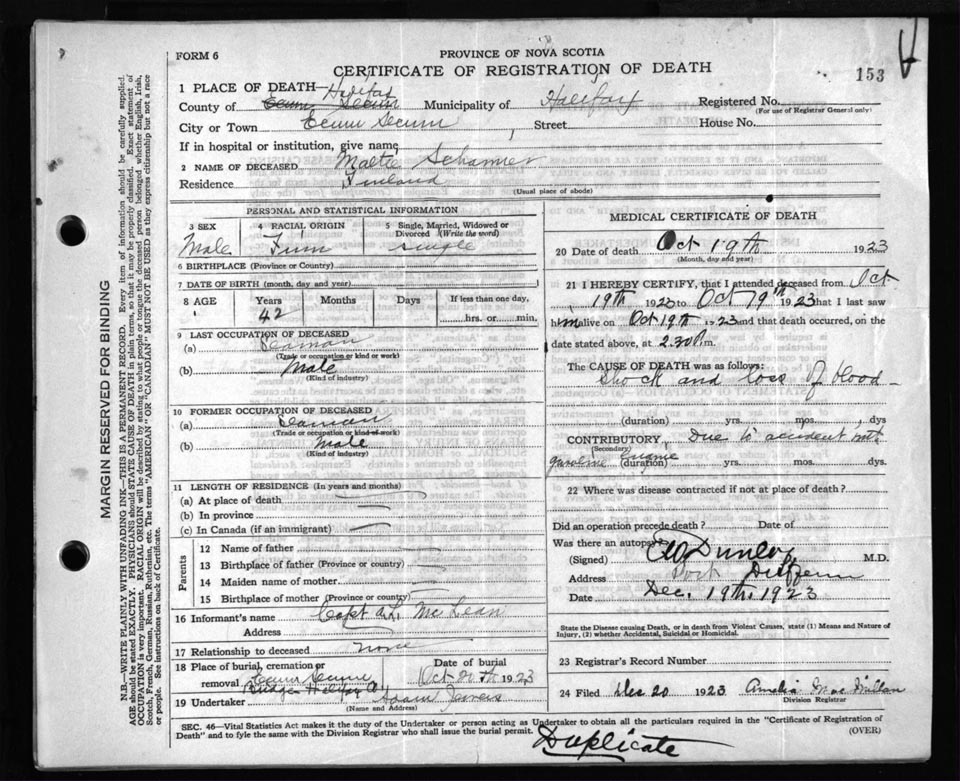 FORM 6
PROVINCE OF NOVA SCOTIA
CERTIFICATE OF REGISTRATION OF DEATH
153
1 PLACE OF DEATH— Halifax
County of Ecum Secum Municipality of Halifax Registered No.
(For use of Registrar General only)
City or Town Ecum Secum Street House No.
If in hospital or institution, give name
2 NAME OF DECEASED
Residence Finland
(Usual place of abode)
PERSONAL AND STATISTICAL INFORMATION
3 SEX 4 RACIAL ORIGIN 5 Single, Married, Widowed or Divorced (Write the word)
Male Finn single
6 BIRTHPLACE (Province or Country)
7 DATE OF BIRTH (month, day and year)
8 AGE Years Months Days If less than one day,
42 hrs. or min.
9 LAST OCCUPATION OF DECEASED
(a) Seaman
(Trade or occupation or kind or work)
(b) Male
(Kind of industry)
10 FORMER OCCUPATION OF DECEASED
(a) Seaman
(Trade or occupation or kind of work)
(b) Male
(Kind of industry)
11 LENGTH OF RESIDENCE (In years and months)
(a) At place of death
(b) In province
(c) In Canada (if an immigrant)
Parents
12 Name of father
13 Birthplace of father (Province or country)
14 Maiden name of mother
15 Birthplace of mother (Province or country)
16 Informant's name Capt A.L. McLean
Address
17 Relationship to deceased none
18 Place of burial, cremation or removal Ecum Secum Bridge Halifax Date of burial Oct 1923
19 Undertaker Adam
(Name and Address)
MEDICAL CERTIFICATE OF DEATH
20 Date of death Oct 19th 1923
(Month, day and year)
21 I HEREBY CERTIFY, that I attended deceased from Oct
19th 1923 to Oct 19th 1923 that I last saw
him alive on Oct 19th 1923 and that death occurred, on the
date stated above, at 2.30 P.m.
The CAUSE OF DEATH was as follows:
Shock and loss of blood
(duration) yrs. mos. dys
CONTRIBUTORY Due to accident with
(Secondary)
gasoline engine (duration) yrs. mos. dys.
22 Where was disease contracted if not at place of death?
Did an operation precede death? Date of
Was there an autopsy
(Signed) Dunlop M.D.
Address Port Dufferin
Date Dec. 19th, 1923
State the Disease causing Death, or in death from Violent Causes, state (1) Means and Nature of
Injury, (2) whether Accidental, Suicidal or Homicidal.
23 Registrar's Record Number
24 Filed Dec 20 1923 Amelia MacMillan
Division Registrar
SEC. 46—Vital Statistics Act makes it the duty of the Undertaker or person acting as Undertaker to obtain all the particulars required in the "Certificate of Registration of
Death" and to fyle the same with the Division Registrar who shall issue the burial permit.
(OVER)
Duplicate
MARGIN RESERVED FOR BINDING
N.B.—WRITE PLAINLY WITH UNFADING INK—THIS IS A PERMANENT RECORD. Every item of information should be carefully supplied.
AGE should be stated EXACTLY. PHYSICIANS should STATE CAUSE OF DEATH in plain terms, so that it may be properly classified. Exact statement of
OCCUPATION is very important. RACIAL ORIGIN will be described by stating to what people or tongue the deceased person belonged whether English, Irish,
Scotch, French, German, Russian, Ruthenian, etc. The terms "AMERICAN" OR "CANADIAN" MUST NOT BE USED as they express citizenship but not a race
or people. See instructions on back of Certificate.